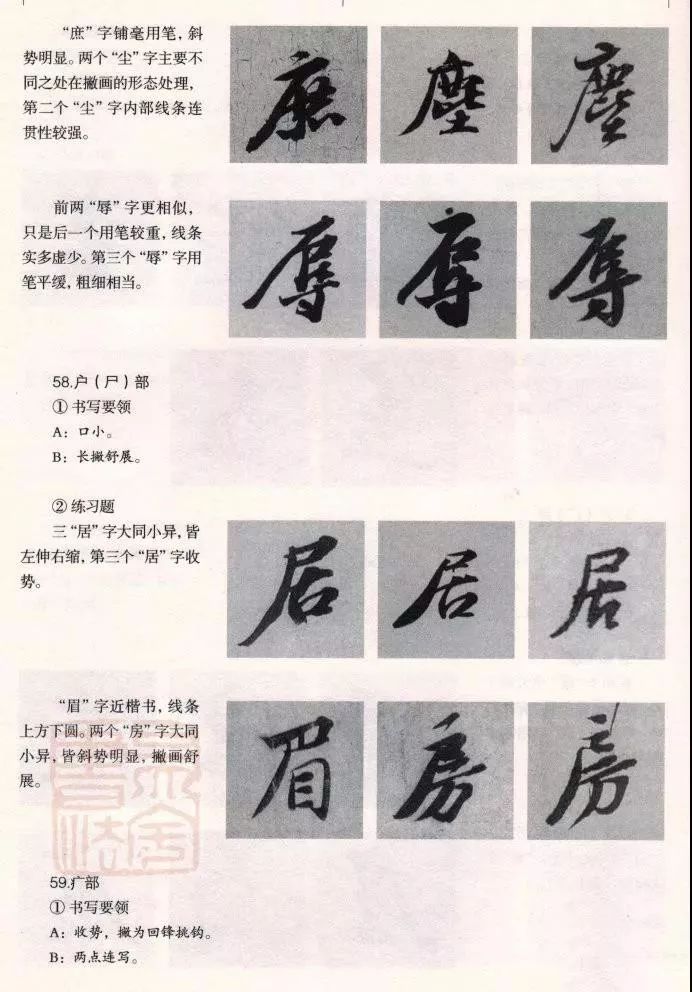 “庶”字铺毫用笔，斜
势明显。两个“尘”字主要不
同之处在撇画的形态处理，
第二个“尘”字内部线条连
贯性较强。
庶 塵 塵
前两“辱”字更相似，
只是后一个用笔较重，线条
实多虚少。第三个“辱”字用
笔平缓，粗细相当。
辱 辱 辱
58.户（尸）部
①书写要领
A：口小。
B：长撇舒展。
②练习题
三“居”字大同小异，皆
左伸右缩，第三个“居”字收
势。
居 居 居
“眉”字近楷书，线条
上方下圆。两个“房”字大同
小异，皆斜势明显，撇画舒
展。
眉 房 房
59.疒部
①书写要领
A：收势，撇为回锋挑钩。
B：两点连写。